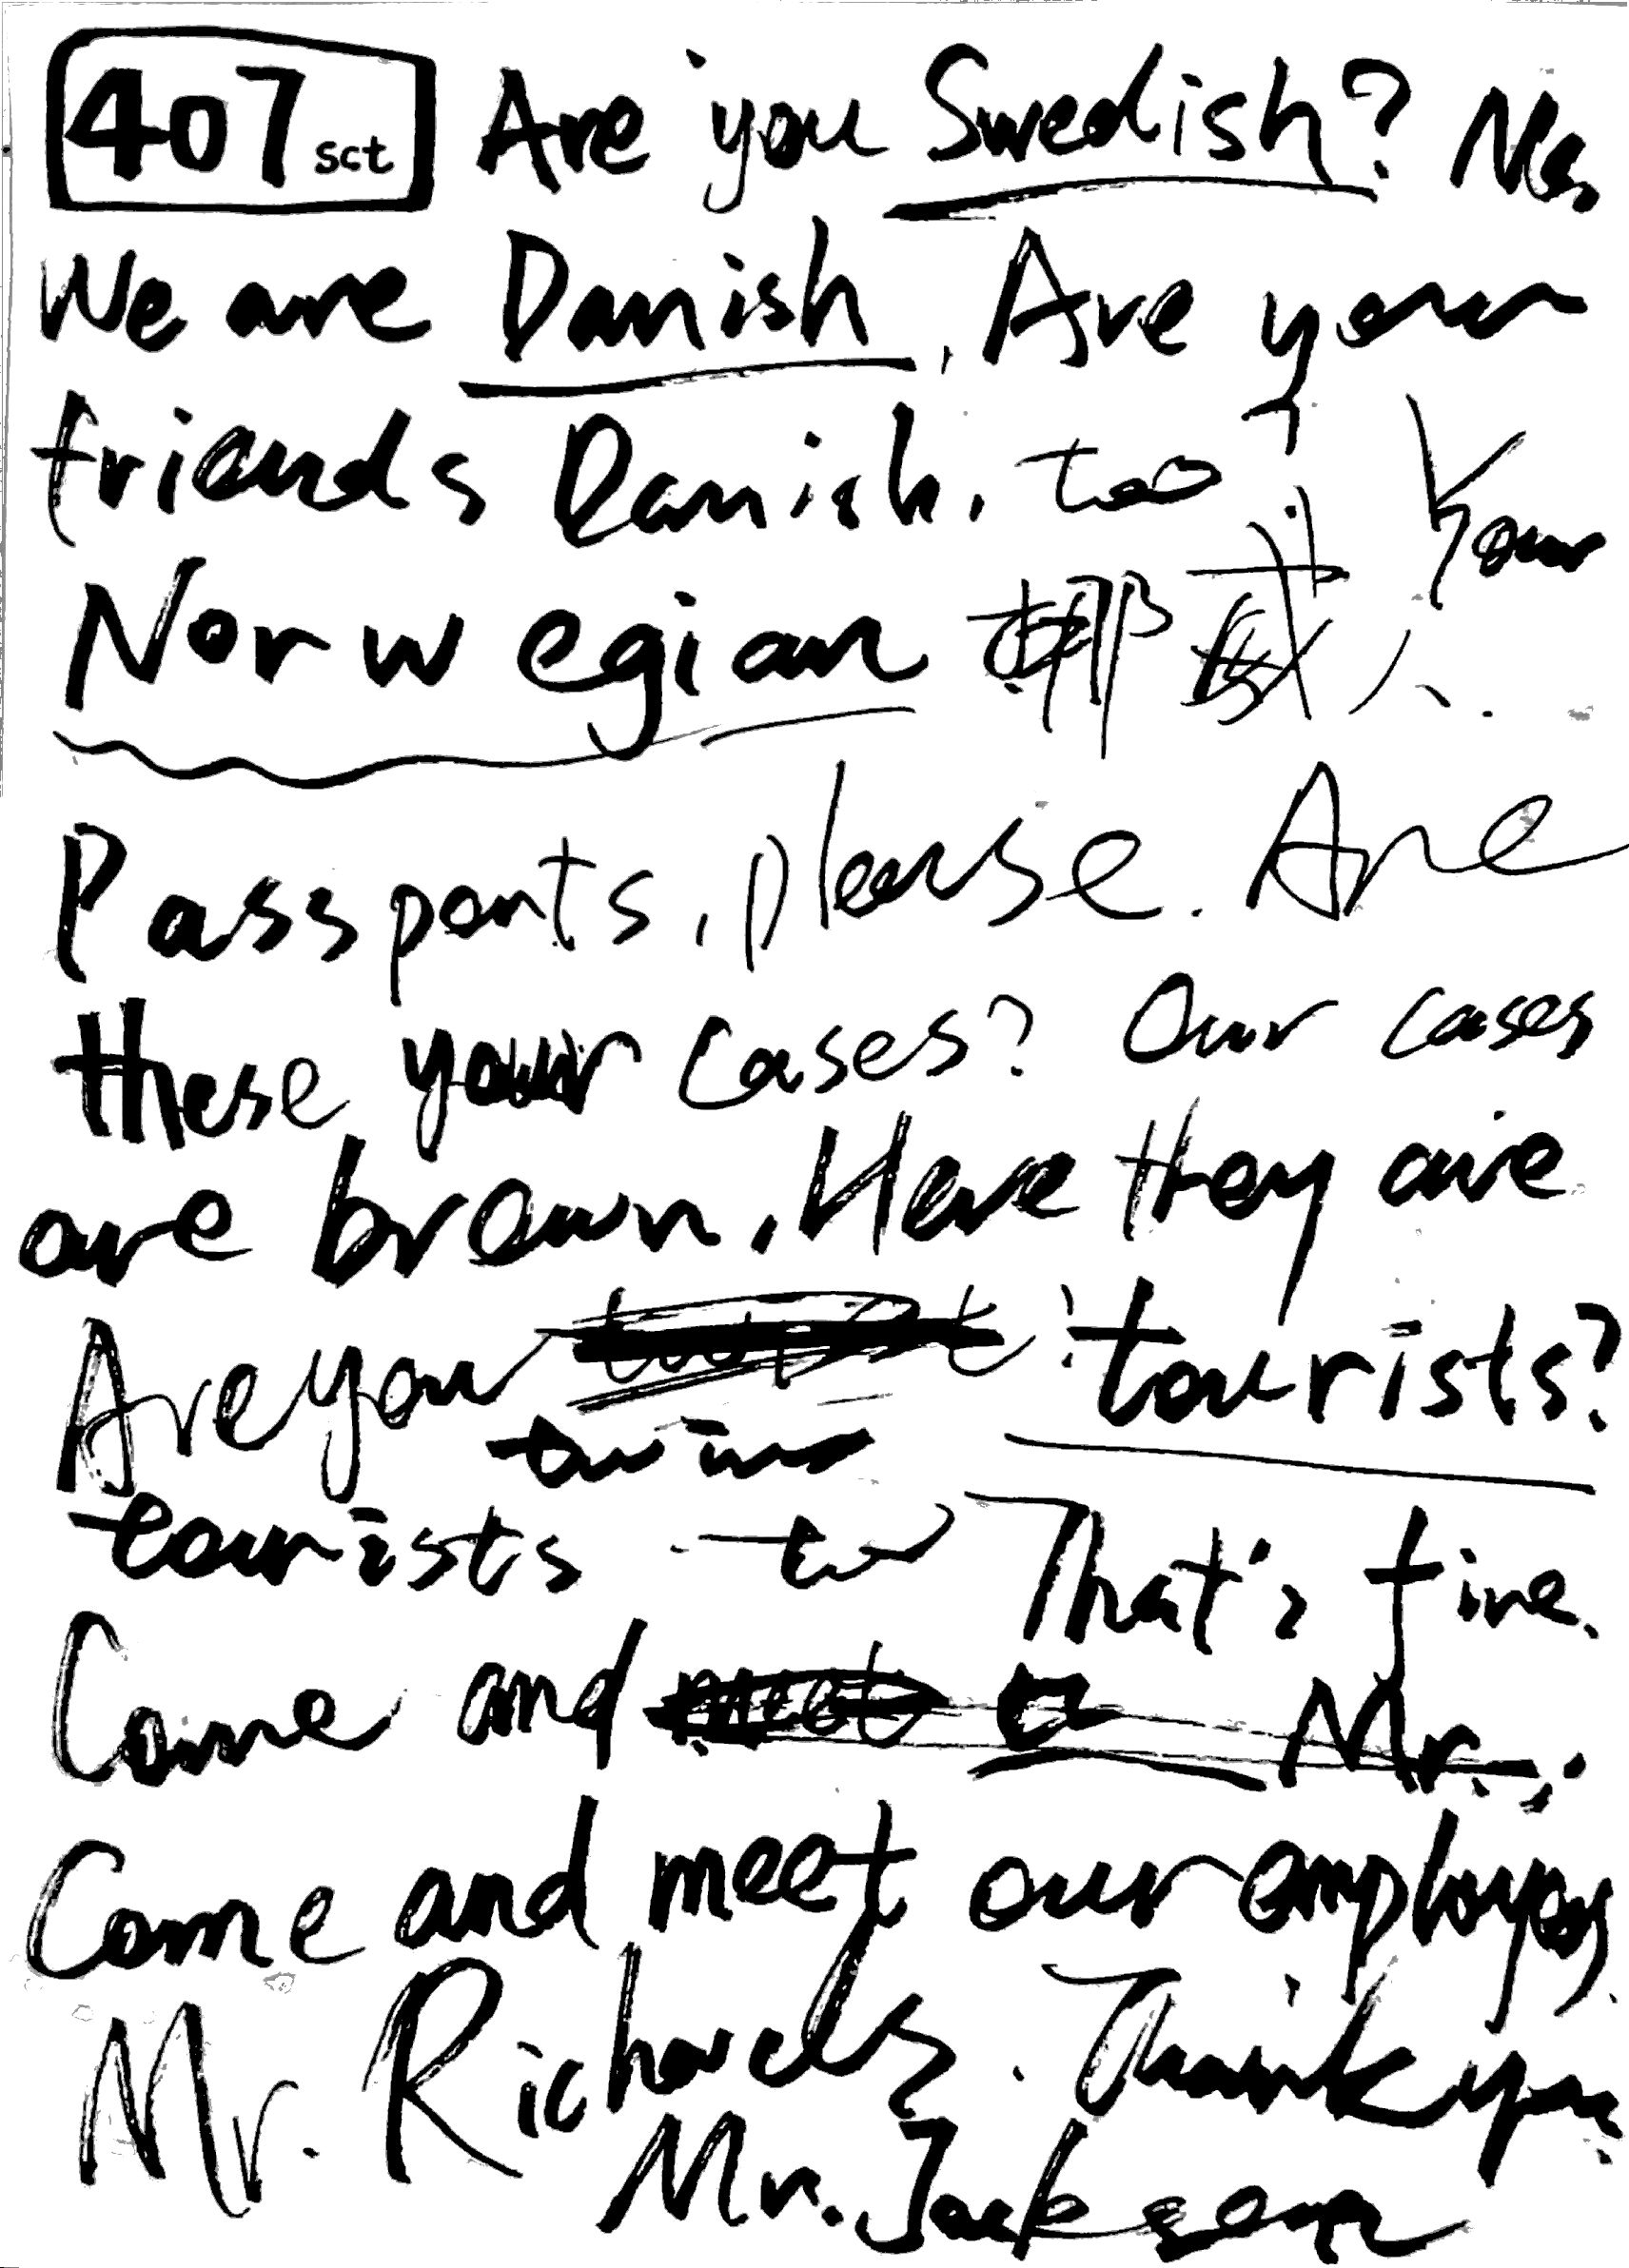 407 sct Are you Swedish? No,
We are Danish. Are your
friends Danish, too? Your
Norwegian 挪威人.
Passports, please. Are
these your cases? Our cases
are brown. Here they are
Are you tourists?
tourists
That's fine.
Come and meet Mr.
Come and meet our employees
Mr. Richards. Thank you
Mr. Jackson